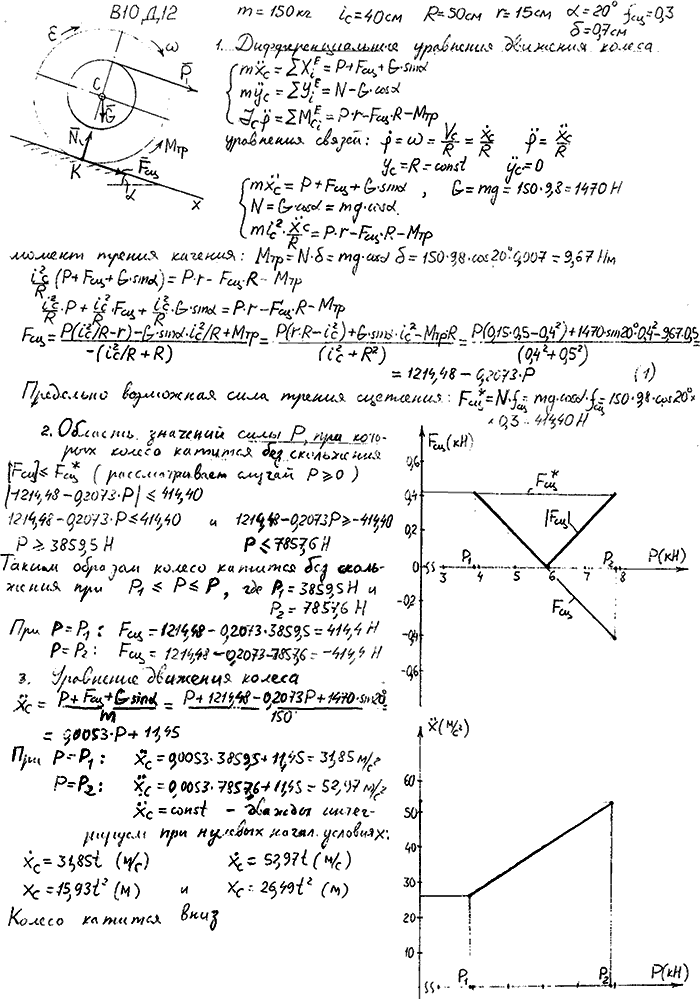 В10 Д.12
m = 150 кг   i_c = 40 см   R = 50 см   r = 15 см   α = 20°   f_сц = 0,3
δ = 0,7 см
ε
ω
P̄
C
Ḡ
N̄
K
F̄сц
Mтр
α
x
1. Дифференциальные уравнения движения колеса
mẍ_c = ΣX_i^E = P + Fсц + G·sinα
mÿ_c = ΣY_i^E = N − G·cosα
J_c φ̈ = ΣM_ci^E = P·r − Fсц·R − Mтр
уравнения связей: φ̇ = ω = V_c/R = ẋ_c/R   φ̈ = ẍ_c/R
y_c = R = const   ÿ_c = 0
mẍ_c = P + Fсц + G·sinα ,   G = mg = 150·9,8 = 1470 Н
N = G·cosα = mg·cosα
m i_c²·ẍ_c/R = P·r − Fсц·R − Mтр
момент трения качения: Mтр = N·δ = mg·cosα δ = 150·9,8·cos20°·0,007 = 9,67 Нм
i_c²/R (P + Fсц + G·sinα) = P·r − Fсц·R − Mтр
i_c²/R·P + i_c²/R·Fсц + i_c²/R·G·sinα = P·r − Fсц·R − Mтр
Fсц = P(i_c²/R − r) − G·sinα·i_c²/R + Mтр / −(i_c²/R + R) = P(r·R − i_c²) + G·sinα·i_c² − Mтр·R / (i_c² + R²) = P(0,15·0,5 − 0,4²) + 1470·sin20°·0,4² − 9,67·0,5 / (0,4² + 0,5²)
= 1214,48 − 0,2073·P   (1)
Предельно возможная сила трения сцепления: Fсц* = N·fсц = mg·cosα·fсц = 150·9,8·cos20°×
× 0,3 = 414,40 Н
2. Область значений силы P, при кото-
рых колесо катится без скольжения
|Fсц| ≤ Fсц* (рассматривает случай P ≥ 0)
|1214,48 − 0,2073·P| ≤ 414,40
1214,48 − 0,2073·P ≤ 414,40   и   1214,48 − 0,2073P ≥ −414,40
P ≥ 3859,5 Н   P ≤ 7857,6 Н
Таким образом колесо катится без сколь-
жения при P₁ ≤ P ≤ P, где P₁ = 3859,5 Н и
P₂ = 7857,6 Н
При P = P₁: Fсц = 1214,48 − 0,2073·3859,5 = 414,4 Н
P = P₂: Fсц = 1214,48 − 0,2073·7857,6 = −414,4 Н
3. Уравнение движения колеса
ẍ_c = P + Fсц + G sinα / m = P + 1214,48 − 0,2073P + 1470·sin20° / 150
= 0,0053·P + 11,45
При P = P₁: ẍ_c = 0,0053·3859,5 + 11,45 = 31,85 м/с²
P = P₂: ẍ_c = 0,0053·7857,6 + 11,45 = 52,97 м/с²
ẍ_c = const – дважды интег-
рируем при нулевых начал. условиях:
ẋ_c = 31,85t (м/с)   ẋ_c = 52,97t (м/с)
x_c = 15,93t² (м)   и   x_c = 26,49t² (м)
Колесо катится вниз
Fсц(кН)
0,6
0,4
0,2
0
-0,2
-0,4
-0,6
Fсц*
|Fсц|
Fсц
3   P₁   4   5   6   7   P₂   8   P(кН)
ẍ(м/с²)
60
50
40
30
20
10
P₁   P₂   P(кН)